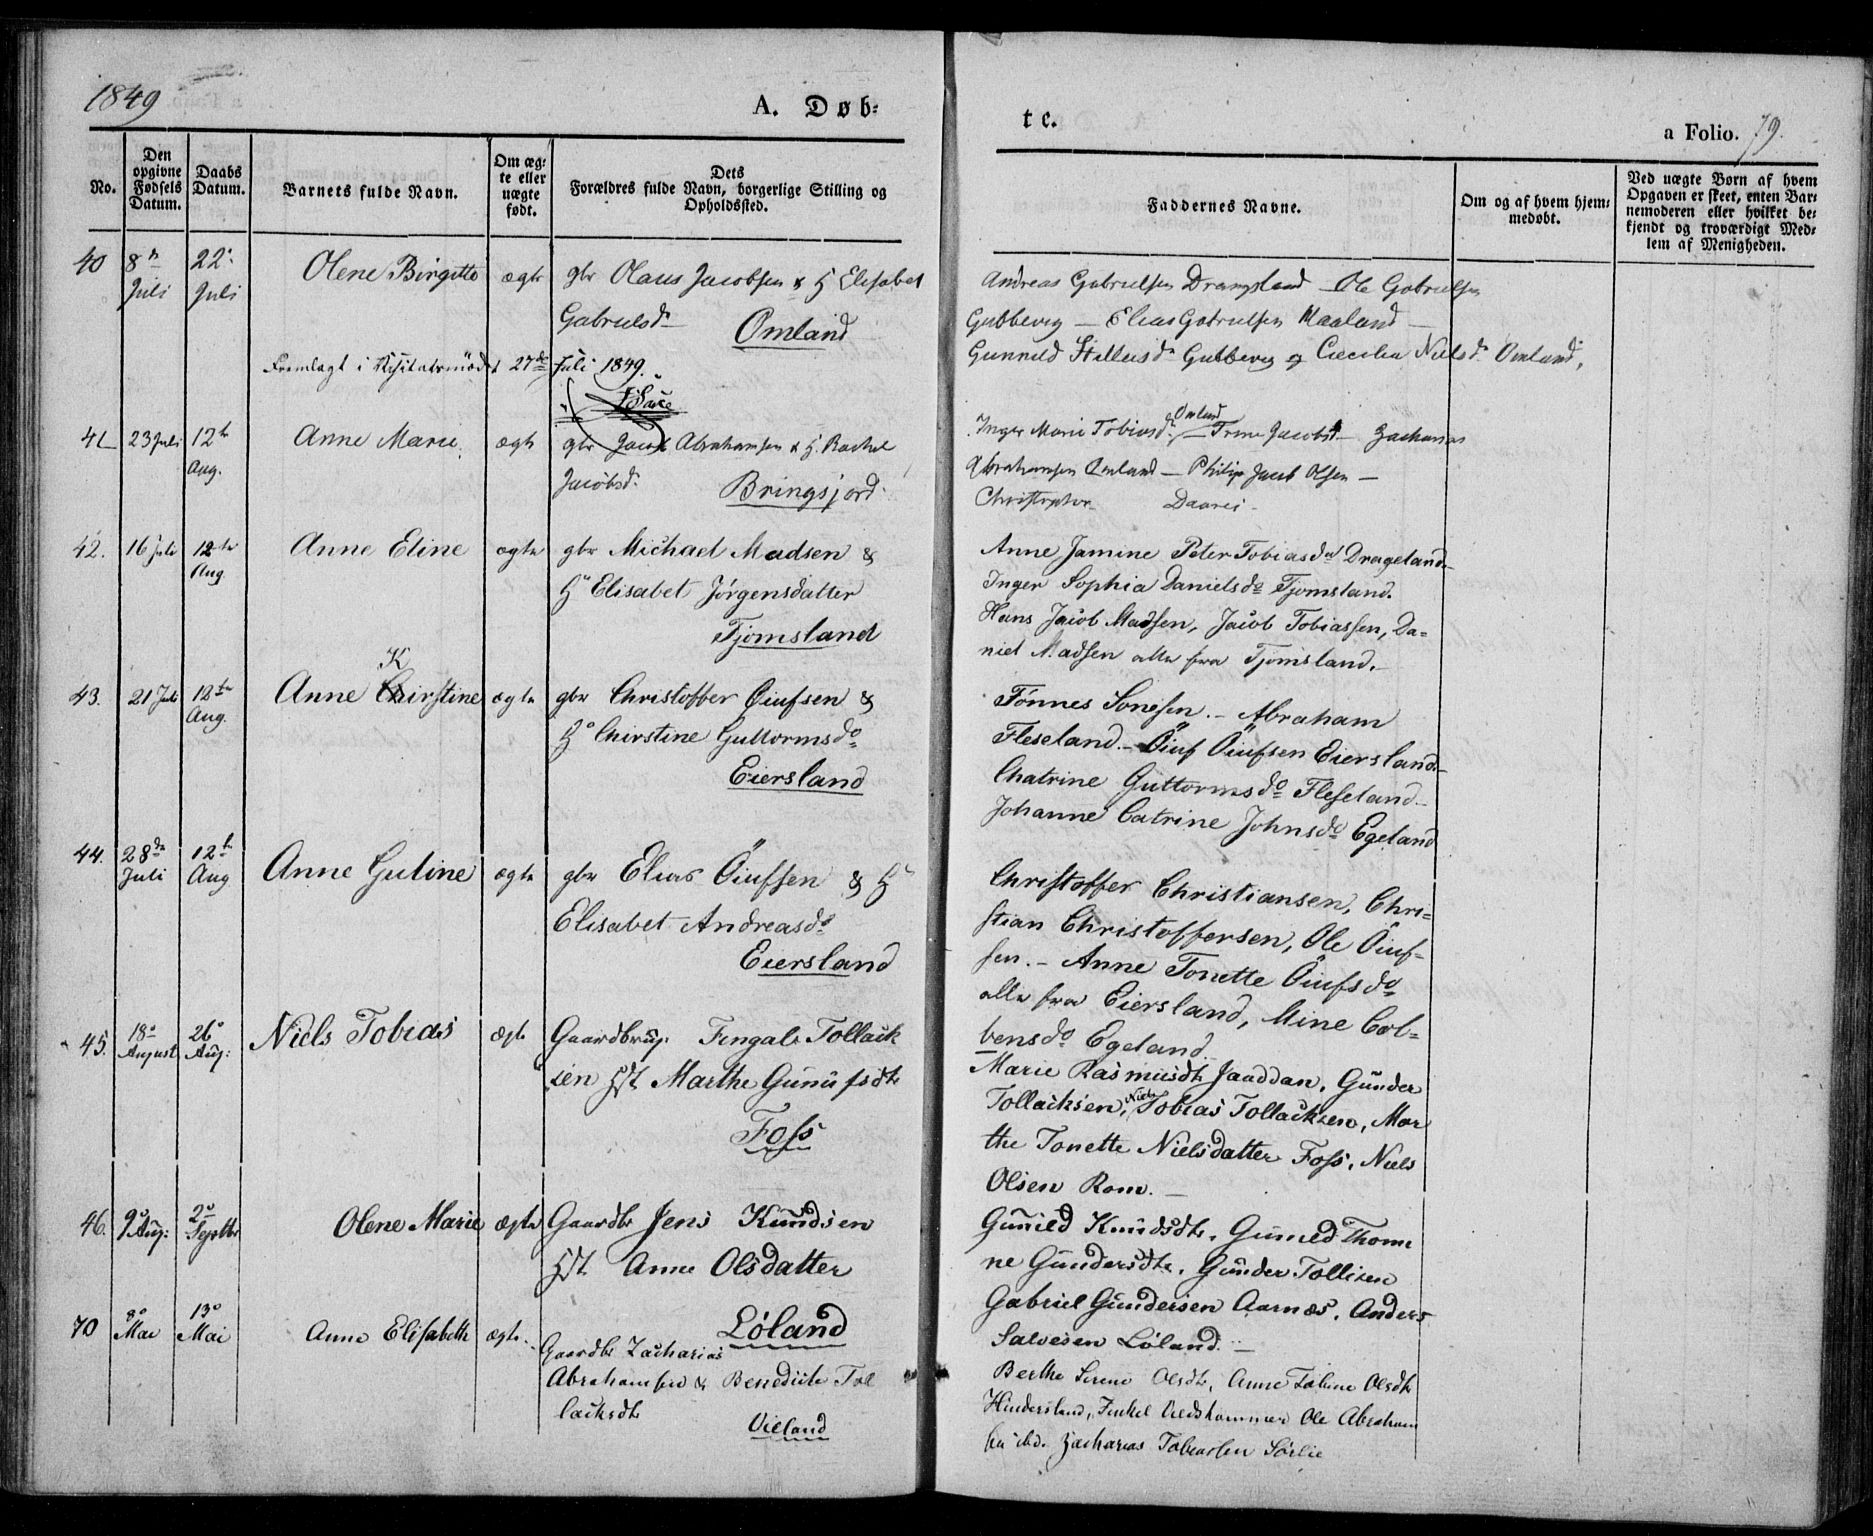 1849
A. Døb-
tc.
a Folio. 79.
No.
Den opgivne Fødsels Datum.
Daabs Datum.
Barnets fulde Navn.
Om æg-te eller uægte født.
Dets Forældres fulde Navn, borgerlige Stilling og Opholdssted.
Faddernes Navne.
Om og af hvem hjem-medøbt.
Ved uægte Børn af hvem Opgaven er skeet, enten Bar-nemoderen eller hvilket be-kjendt og troværdigt Med-lem af Menigheden.
40 8de Juli 22 Juli Olene Birgitte ægte gbr Olaus Jacobsen & H Elisabet
Gabrielsd. Omland
Andreas Gabrielsen Drangsland – Ole Gabrielsen
Gubbevig – Elias Gabrielsen Maaland –
Gunnild Gubbevig og Cæcilia Nielsd. Omland,
Fremlagt i Visitatsmødet 27de Juli 1849.
41 23 Juli 12te Aug. Anne Marie ægte gbr Jacob Abrahamsen & H. Rachel
Jacobsd. Bringsjord
Inger Marie Tobiasd. Omland – Trine Jacobsd – Zacharias
Abrahamsen Omland – Philip Jacob Olsen –
Christopher Daarei
42. 16 Juli 12te Aug Anne Eline ægte gbr Michael Madsen &
H Elisabet Jørgensdatter
Tjomsland
Anne Jamine Peter Tobiasd. Drageland.
Inger Sophia Danielsd. Tjomsland.
Hans Jacob Madsen, Jacob Tobiassen, Da-
niel Madsen alle fra Tjomsland.
43. 21 Juli 12te Aug. Anne K Chirstine ægte gbr Christoffer Öiufsen &
H Chirstine Guttormsd.
Eiersland
Tönnes Sonesen. – Abraham
Fleseland. – Öiuf Öiufsen Eiersland –
Chatrine Guttormsd. Fleseland –
Johanne Catrine Johnsd. Egeland
44. 28de Juli 12te Aug Anne Guline ægte gbr Elias Öiufsen & H
Elisabet Andreasd.
Eiersland
Christoffer Christiansen, Chri-
stian Christoffersen, Ole Öiuf-
sen. – Anne Tonette Öiufsd.
alle fra Eiersland, Mine Col-
bensd. Egeland.
45. 18 August 26 Aug: Niels Tobias ægte Gaardbrug. Fingals Tollack
sen Hst Marthe Gunufsdt
Foss
Marie Rasmusdt Jaaddan, Gunder
Tollacksen, Niels Tobias Tollacksen, Mar
the Tonette Nielsdatter Foss, Niels
Olsen Rom. –
46. 9 Aug: 2 Septbr Olene Marie ægte Gaardbr Jens Knudsen
Hst Anne Olsdatter
Løland
Gunild Knudsdt, Gunild Thom
ne Gundersdt, Gunder Tollisen
Gabriel Gundersen Aarnæs, Anders
Salvesen Løland. –
70 8 Mai 13 Mai Anne Elisabeth ægte. Gaardbr Zacharias
Abrahamsen & Benedicte Tol
lacksdt
Vieland
Berthe Serene Olsdt, Anne Taline Olsdt
Hindersland, Ole Abraham
sen ibd. Zacharias Tobiassen Sørlie